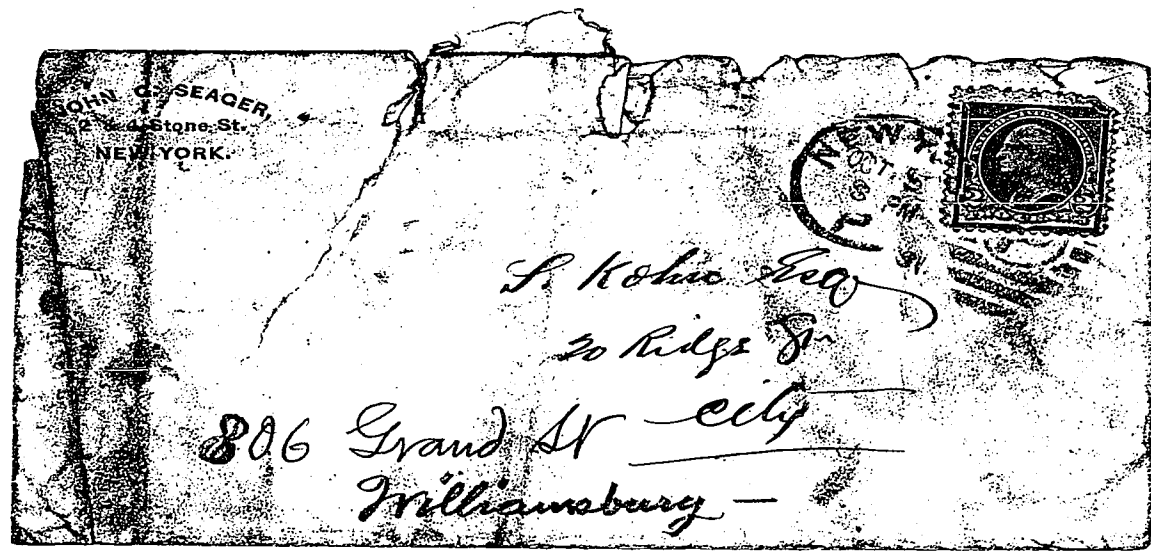 JOHN C. SEAGER,
2 & 4 Stone St.
NEW YORK.
NEW Y
OCT
6
PM
S. Kohn Esq
20 Ridge St
City
806 Grand St
Williamsburg —